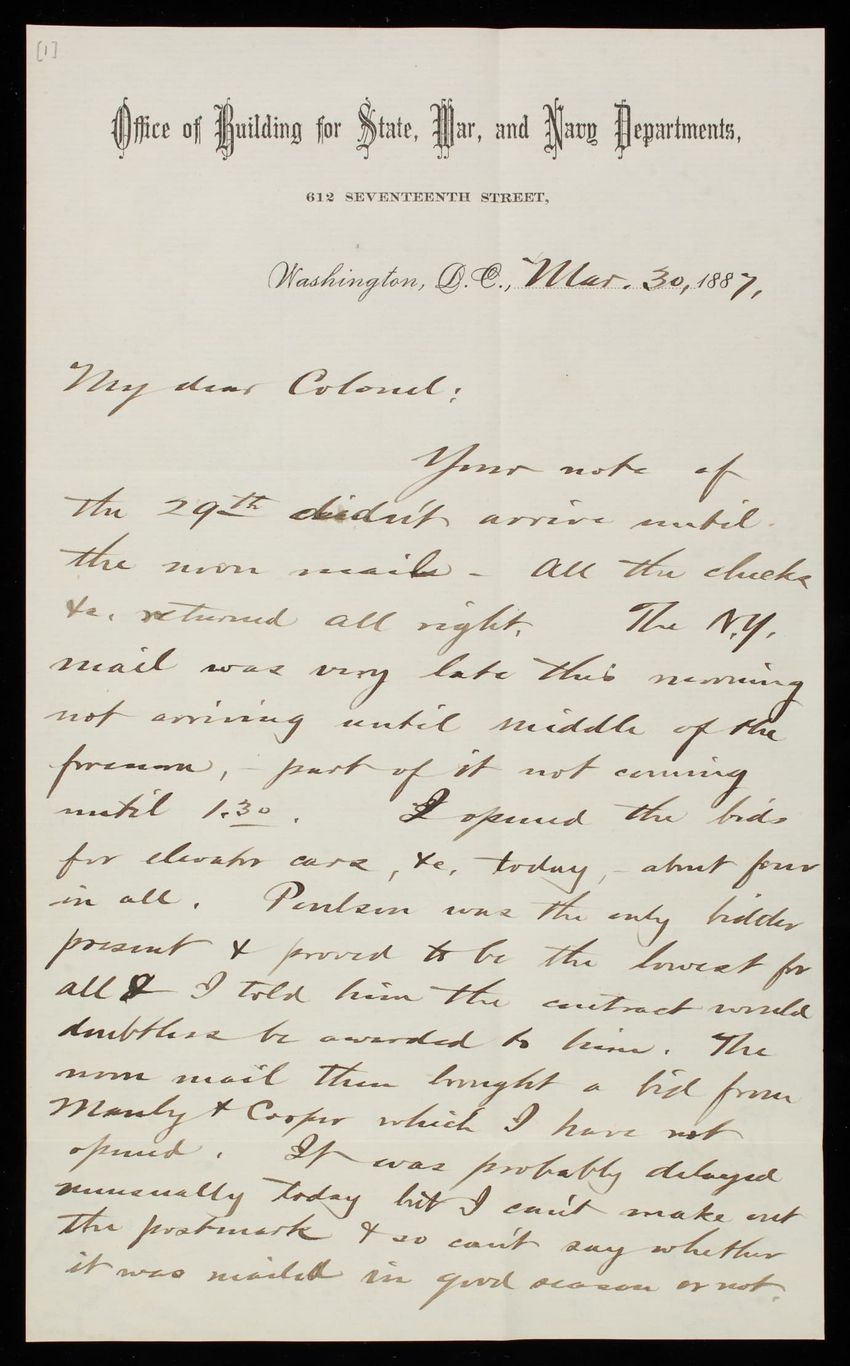 [1]
Office of Building for State, War, and Navy Departments,
612 SEVENTEENTH STREET,
Washington, D.C., Mar. 30, 1887,
My dear Colonel:
Your note of
the 29th didn't arrive until
the noon mail - All the checks
&c. returned all right. The N.Y.
mail was very late this morning
not arriving until middle of the
forenoon, - part of it not coming
until 1.30. I opened the bids
for elevator cars, &c. today, - about four
in all. Poulson was the only bidder
present & proved to be the lowest for
all & I told him the contract would
doubtless be awarded to him. The
noon mail then brought a bid from
Manly & Cooper which I have not
opened. It was probably delayed
unusually today but I can't make out
the postmark & so can't say whether
it was mailed in good season or not.